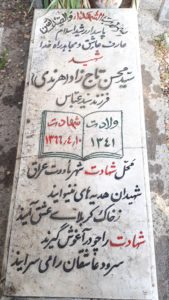 پاسدار رشید اسلام
عارف عاشق و مجاهد راه خدا
شهید
سید محسن تاج زاده هرندی
فرزند سید عباس
ولادت
۱۳۴۱
شهادت
۱۳۶۶,۴,۱۰
محل شهادت شهر ماووت عراق
شهیدان هدیه های نینوایند
ز خاک کربلای عشق آیند
شهادت را چو در آغوش گیرند
سرود عاشقان را می سرایند